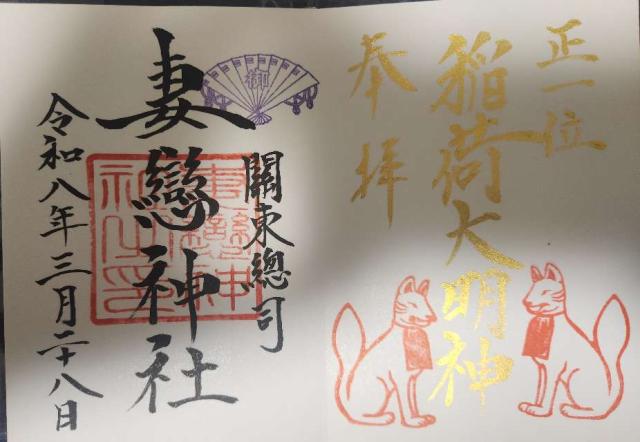 正一位
稲荷大明神
奉拝
關東總司
妻戀神社
令和八年三月二十八日